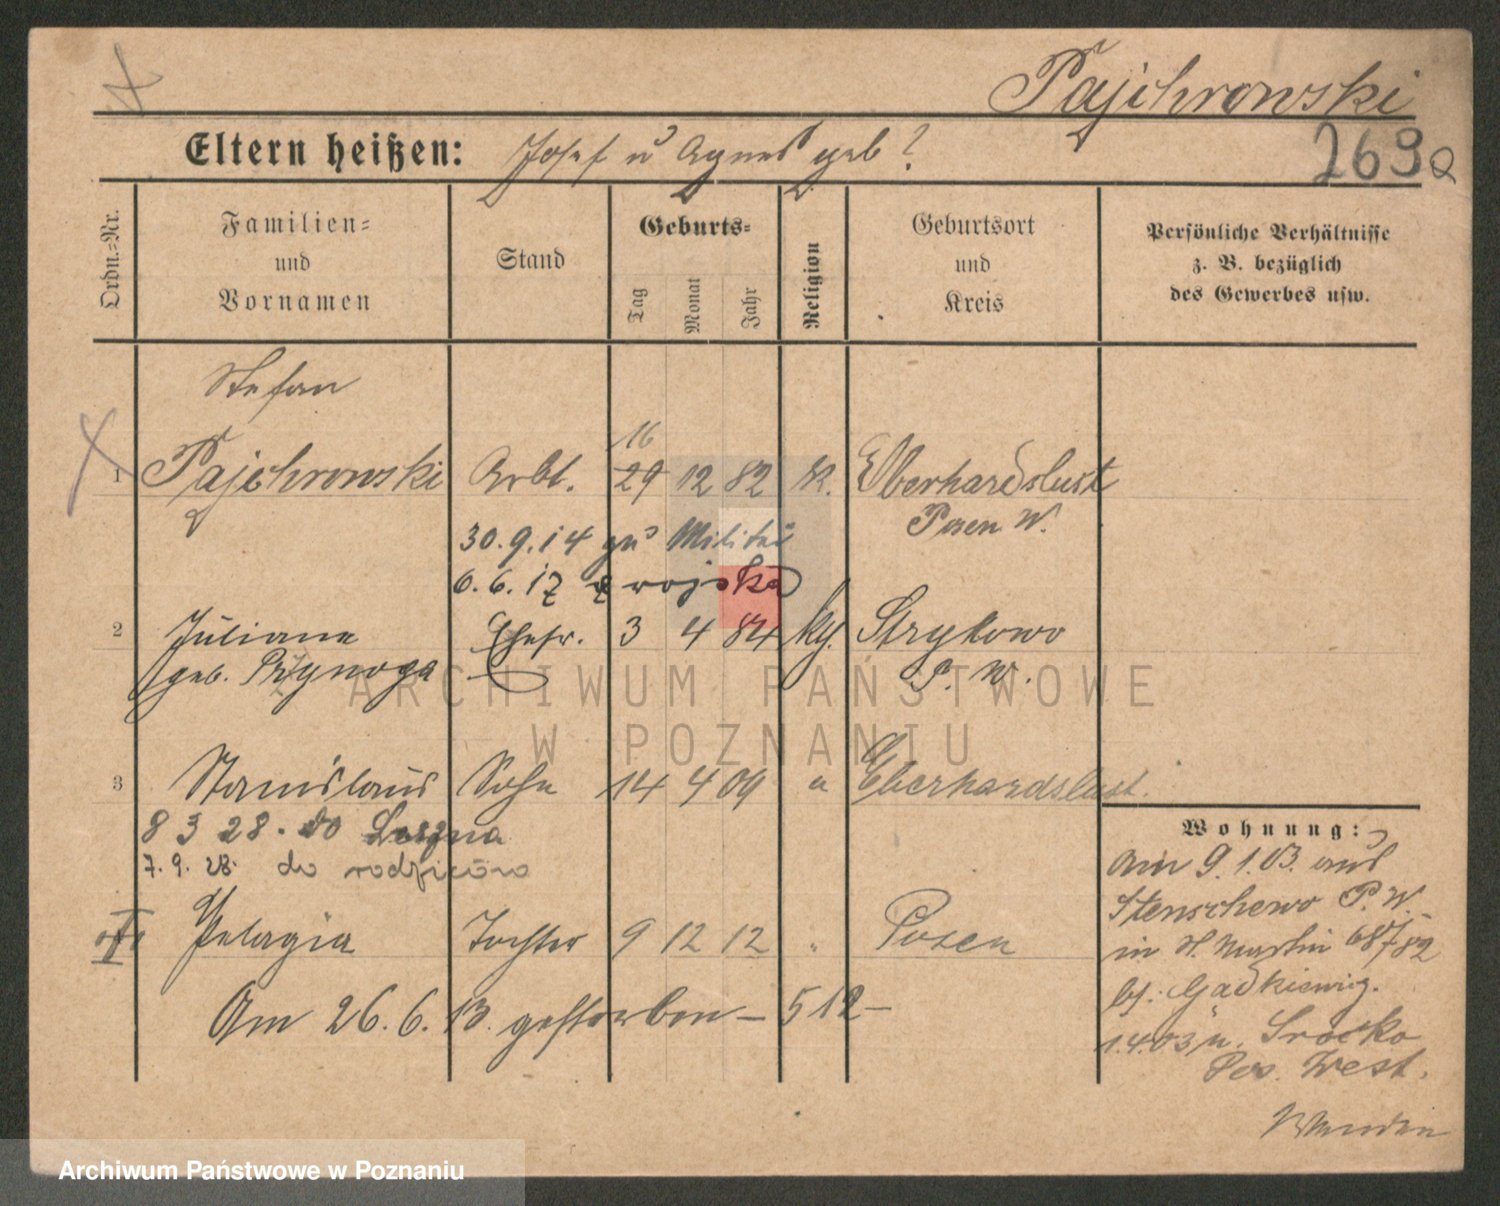 Pajchrowski
Eltern heißen: Josef u Agnes geb?
269a
Ordn.=Nr.
Familien= und Vornamen
Stand
Geburts=
Tag
Monat
Jahr
Religion
Geburtsort und Kreis
Persönliche Verhältnisse
z. B. bezüglich
des Gewerbes usw.
Stefan
16
1 Pajchrowski Arbt. 29 12 82 k. Eberhardslust
Posen W.
30.9.14 zu Militär
6.6.17 z wojska
2 Juliane Ehefr. 3 4 84 kg. Strykowo
geb. Przynoga P. W.
3 Stanislaus Sohn 14 4 09 " Eberhardslust.
8 3 28. do Leszna
7.9.28. do rodziców
Pelagia Tochter 9 12 12 " Posen
Am 26.6.13. gestorben – 512 –
Wohnung:
Am 9.1.03. aus
Stenschewo P. W.
in St. Martin 68/82
bei Gadkiewicz.
1.4.03 n. Srocko
Pos. West.
ARCHIWUM PAŃSTWOWE
W POZNANIU
Archiwum Państwowe w Poznaniu